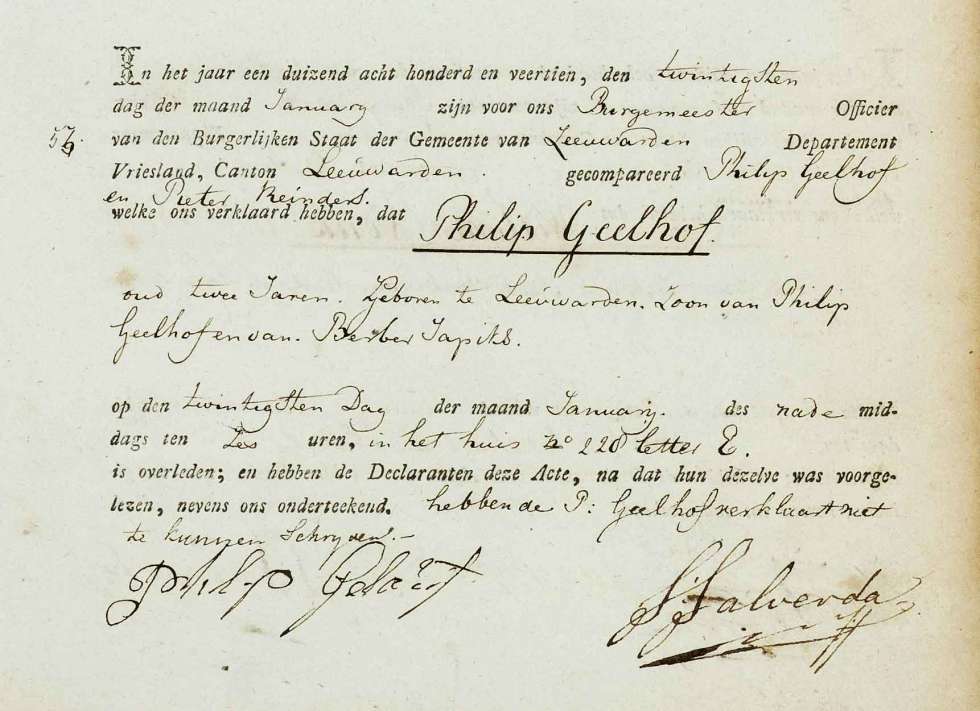 In het jaar een duizend acht honderd en veertien, den twintigsten
dag der maand January zijn voor ons Burgemeester Officier
van den Burgerlijken Staat der Gemeente van Leeuwarden Departement
Vriesland, Canton Leeuwarden. gecompareerd Philip Geelhof
en Pieter Reinders.
welke ons verklaard hebben, dat Philip Geelhof.
oud twee Jaren. Geboren te Leeuwarden. Zoon van Philip
Geelhof en van. Berber Japiks.
op den twintigsten Dag der maand January. des nade mid-
dags ten Zes uren, in het huis no 220 letter E.
is overleden; en hebben de Declaranten deze Acte, na dat hun dezelve was voorge-
lezen, nevens ons onderteekend. hebbende P: Geelhof verklaart niet
te kunnen Schryven.-
Philip
S Salverda